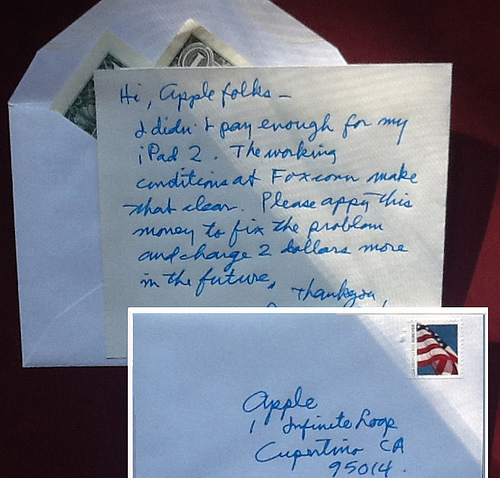 Hi, Apple folks —
I didn't pay enough for my
iPad 2. The working
conditions at Foxconn make
that clear. Please apply this
money to fix the problem
and charge 2 dollars more
in the future.
Thankyou,
Apple
1 Infinite Loop
Cupertino CA
95014.